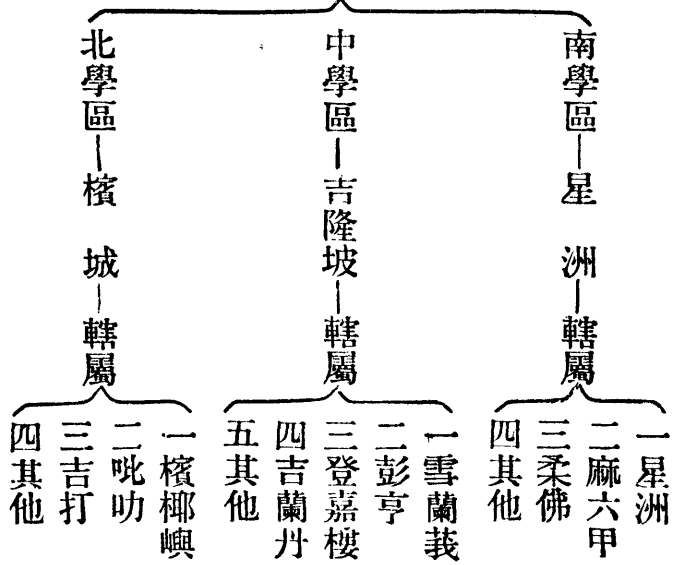 南學區—星洲—轄屬
一星洲
二麻六甲
三柔佛
四其他
中學區—吉隆坡—轄屬
一雪蘭莪
二彭亨
三登嘉樓
四吉蘭丹
五其他
北學區—檳城—轄屬
一檳椰嶼
二吡叻
三吉打
四其他